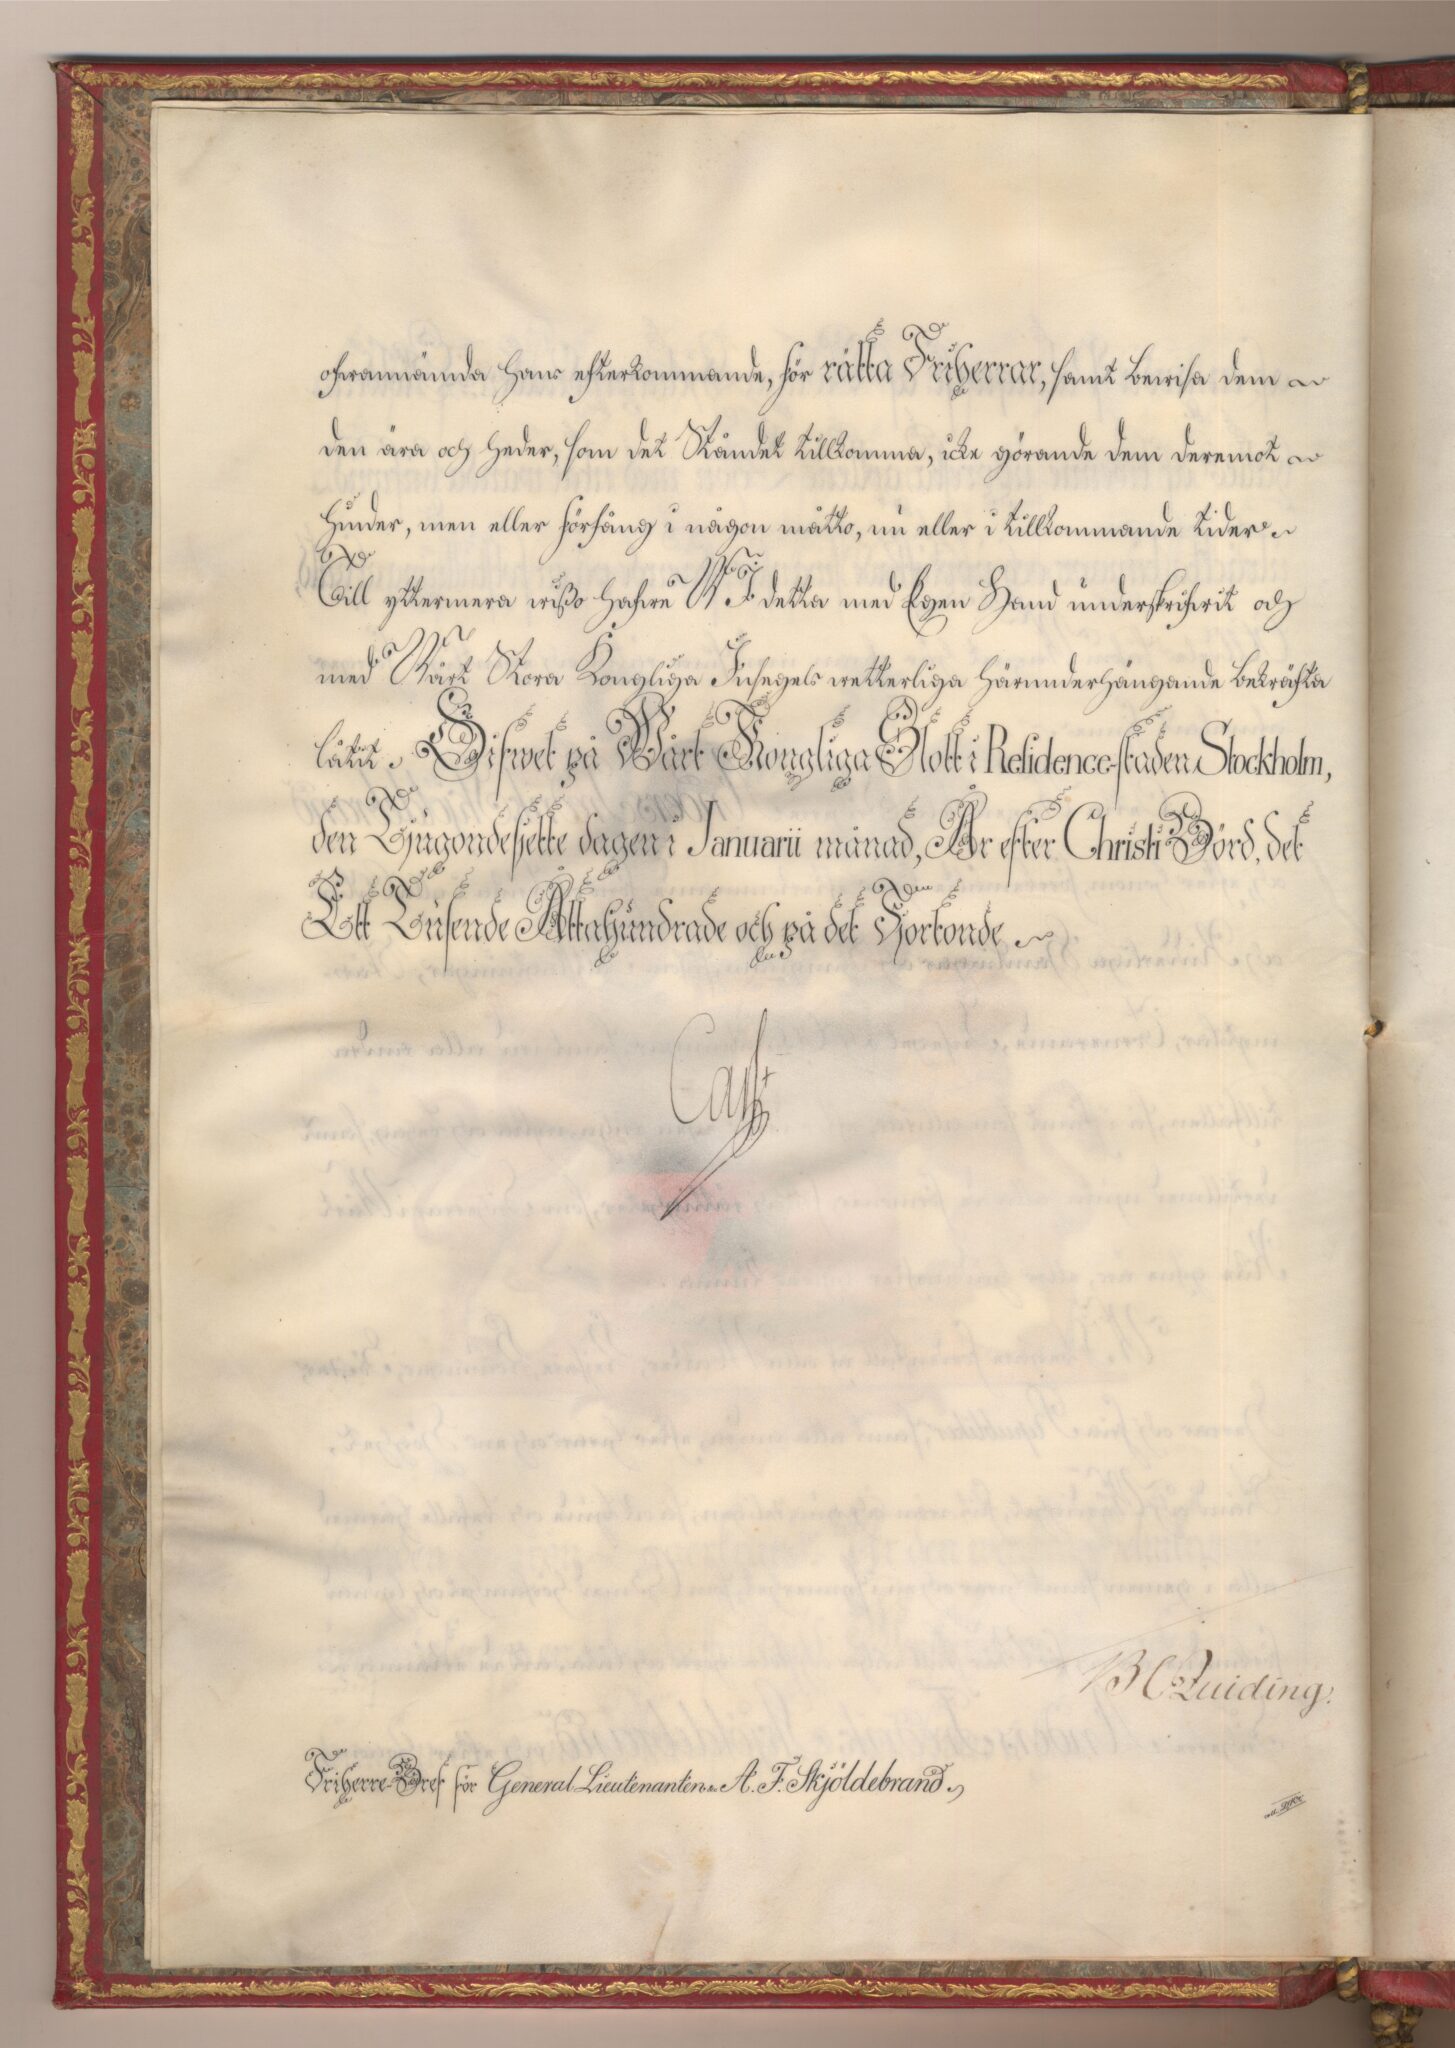 ofwannämda Hans efterkommande, för rätta Friherrar, samt bewisa dem
den ära och heder, som det Ståndet tillkomma, icke görande dem deremot
hinder, men eller förfång i någon måtto, nu eller i tillkommande tider.
Till yttermera wißo hafwe Wi detta med Egen Hand underskrifwit och
med Wårt Stora Kongliga Insegels wetterliga härunderhängande bekräfta
låtit. Gifwet på Wårt Kongliga Slott i Residence-staden Stockholm,
den Tjugondesjette dagen i Januarii månad, År efter Christi Börd, det
Ett Tusende Åttahundrade och på det Fjortonde
Carl
B C Quiding.
Friherre-Bref för General-Lieutenanten A. F. Skjöldebrand.